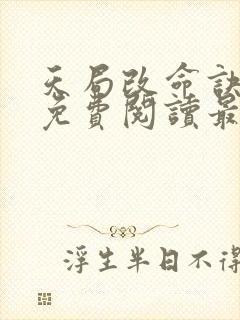 天局改命訣
免費閱讀最
浮生半日不得